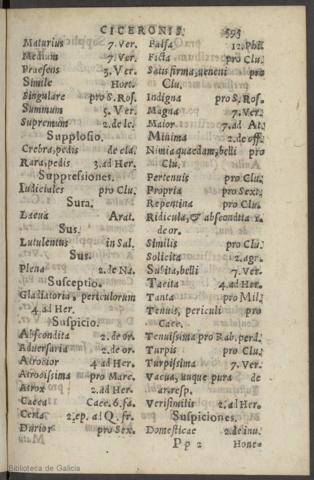 CICERONIS. 595
Maturius 7. Ver.
Medium 7. Ver.
Praesens 3. Ver.
Simile Hort.
Singulare pro S. Ros.
Summum 5. Ver.
Supremum 2. de le.
Supplosio.
Crebra, pedis de cla.
Rara, pedis 3. ad Her.
Suppressiones.
Iudiciales pro Clu.
Sura.
Laeua Arat.
Sus.
Lutulentus in Sal.
Sus.
Plena 2. de Na.
Susceptio.
Gladiatoria, periculorum
4. ad Her.
Suspicio.
Abscondita 2. de or.
Aduersaria 2. de or.
Atrocior 4 ad Her.
Atrocissima pro Marc.
Atrox 2. ad Her.
Caeca Caee. 6. fa.
Certa 2, ep. ad Q. fr.
Durior pro Sex.
Falsa 12. Phil.
Ficta pro Clu.
Satis firma, ueneni pro
Clu.
Indigna pro S. Ros.
Magna 7. Ver.
Maior 7. ad At.
Minima 2. de off.
Nimia quaedam, belli pro
Clu.
Pertenuis pro Clu.
Propria pro Sext.
Repentina pro Clu.
Ridicula, & abscondita 2.
de or.
Similis pro Clu.
Solicita 2. agr.
Subita, belli 7. Ver.
Tacita 4. ad Her.
Tanta pro Mil.
Tenuis, periculi pro
Caec.
Tenuissima pro Rab. perd.
Turpis pro Clu.
Turpissima 7. Ver.
Vacua, atque pura de
ar. resp.
Verisimilis 2. ad Her.
Suspiciones.
Domesticae 2. de inu.
Pp 2 Hone-
Biblioteca de Galicia